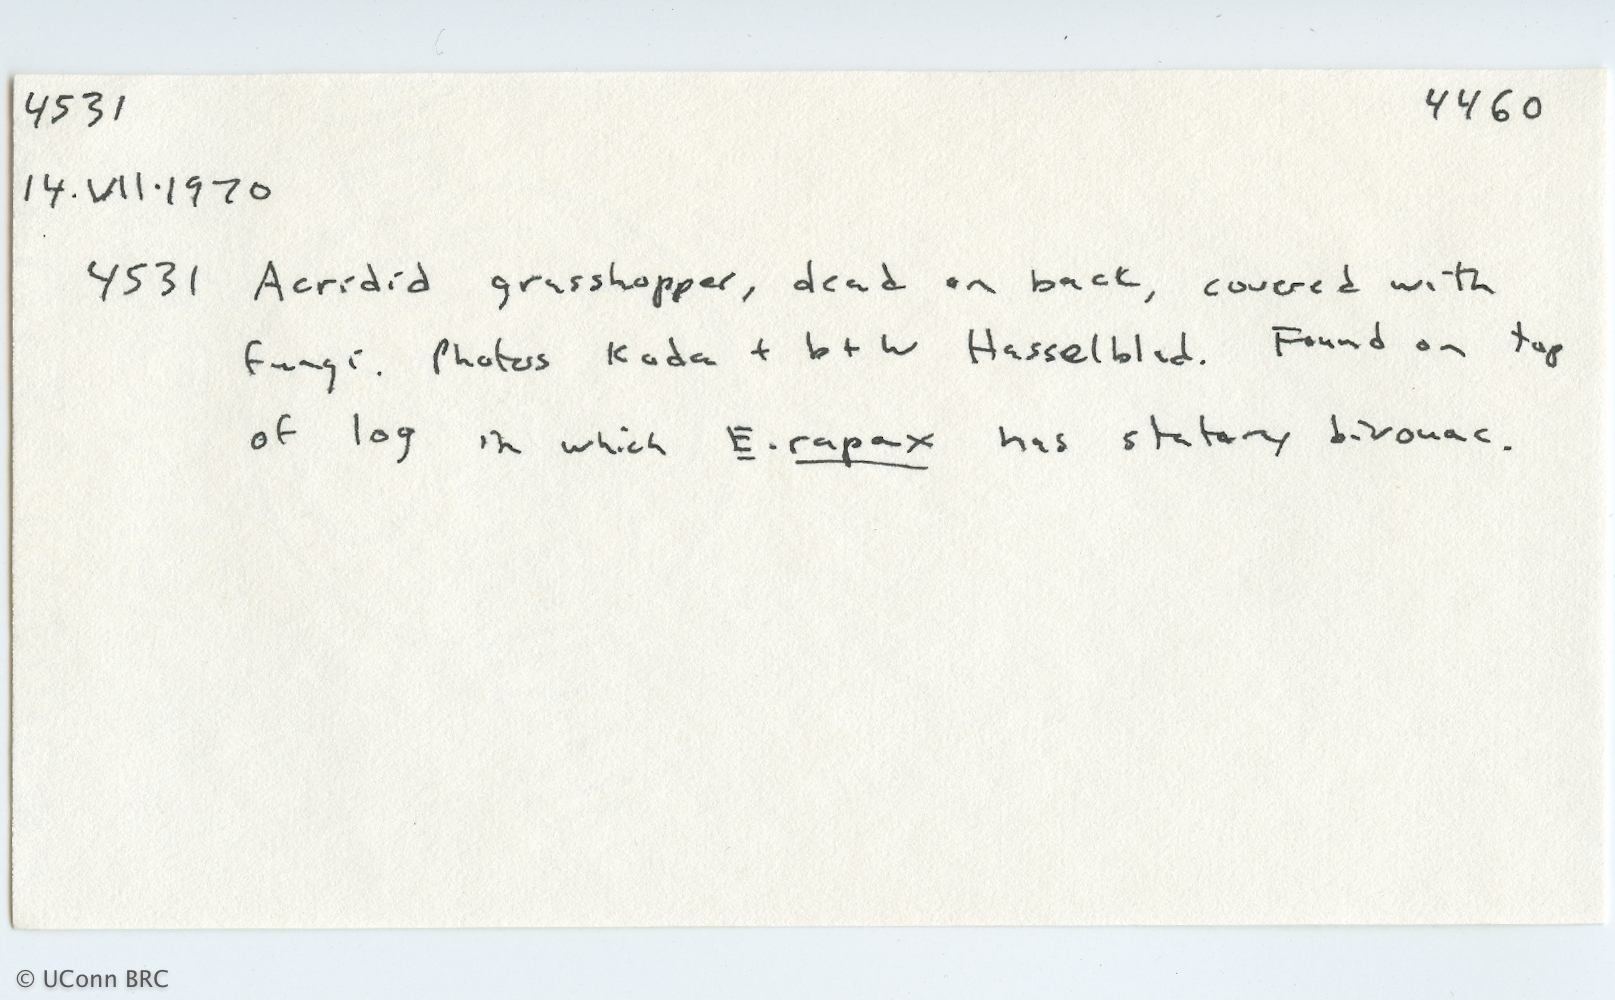 4531 4460
14.VII.1970
4531 Acridid grasshopper, dead on back, covered with
fungi. Photos Koda + b+w Hasselblad. Found on top
of log in which E. rapax has statary bivouac.
© UConn BRC